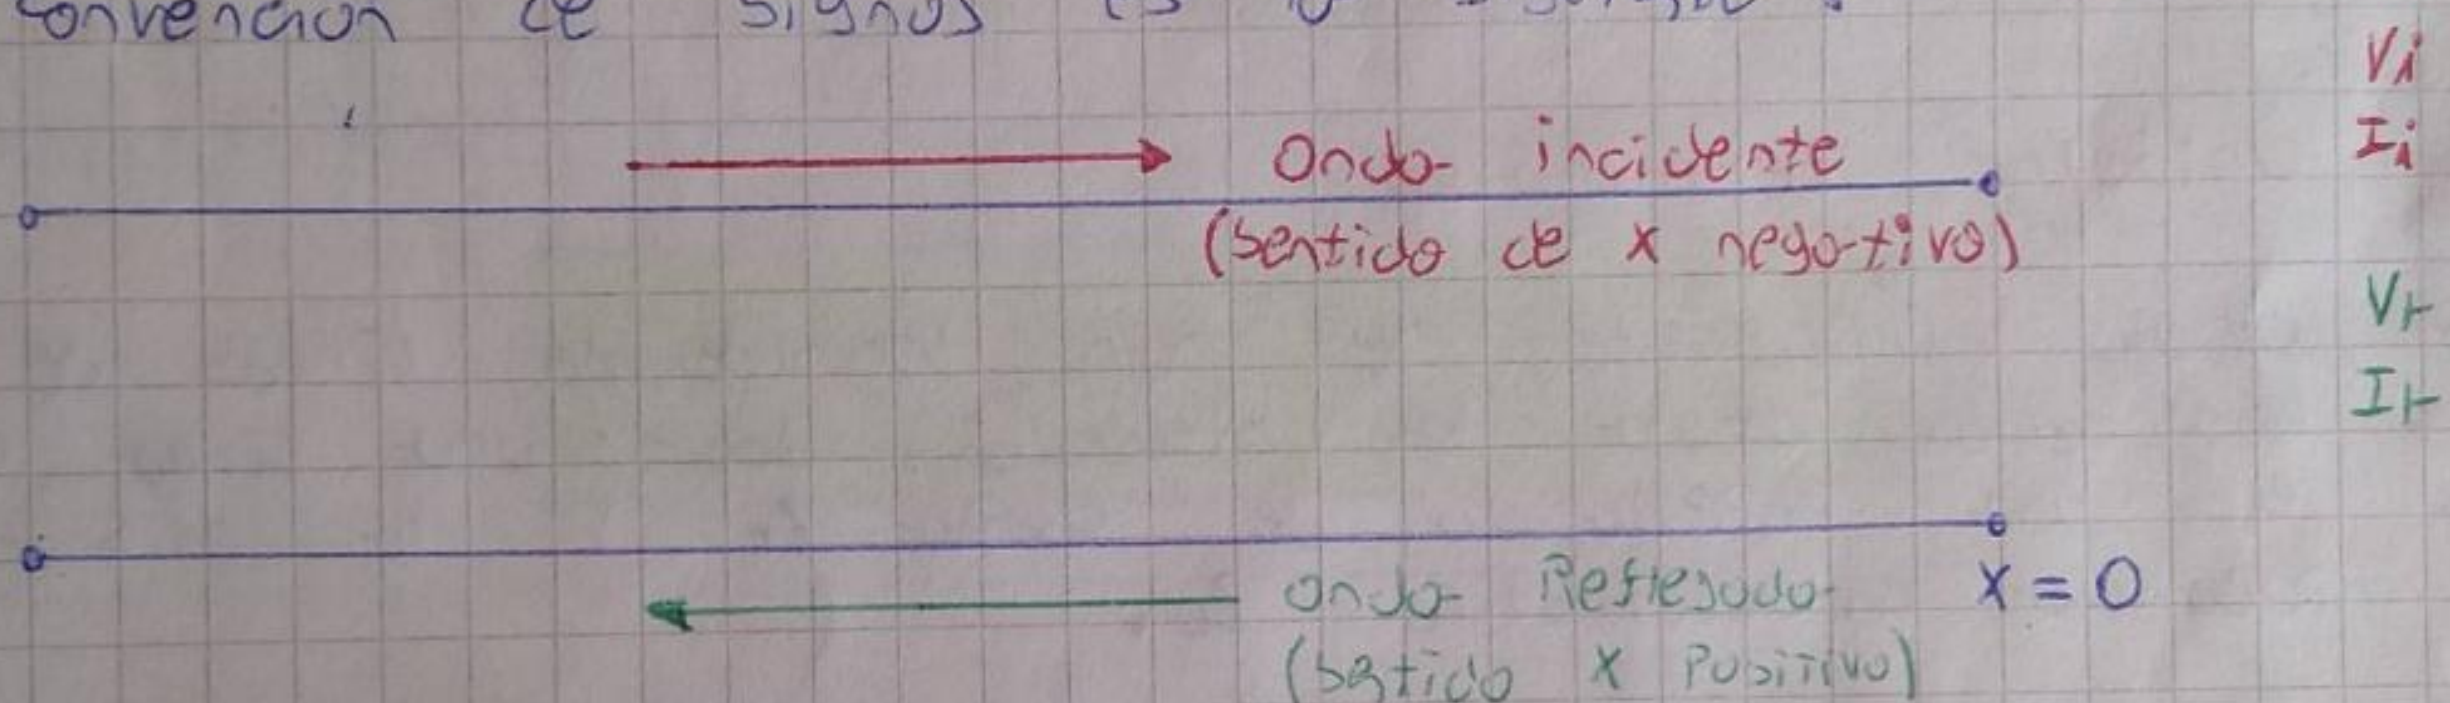 onvención de signos es
Vi
Onda incidente
Ii
(sentido de x negativo)
Vr
Ir
Onda Reflejada
x = 0
(sentido x Positivo)